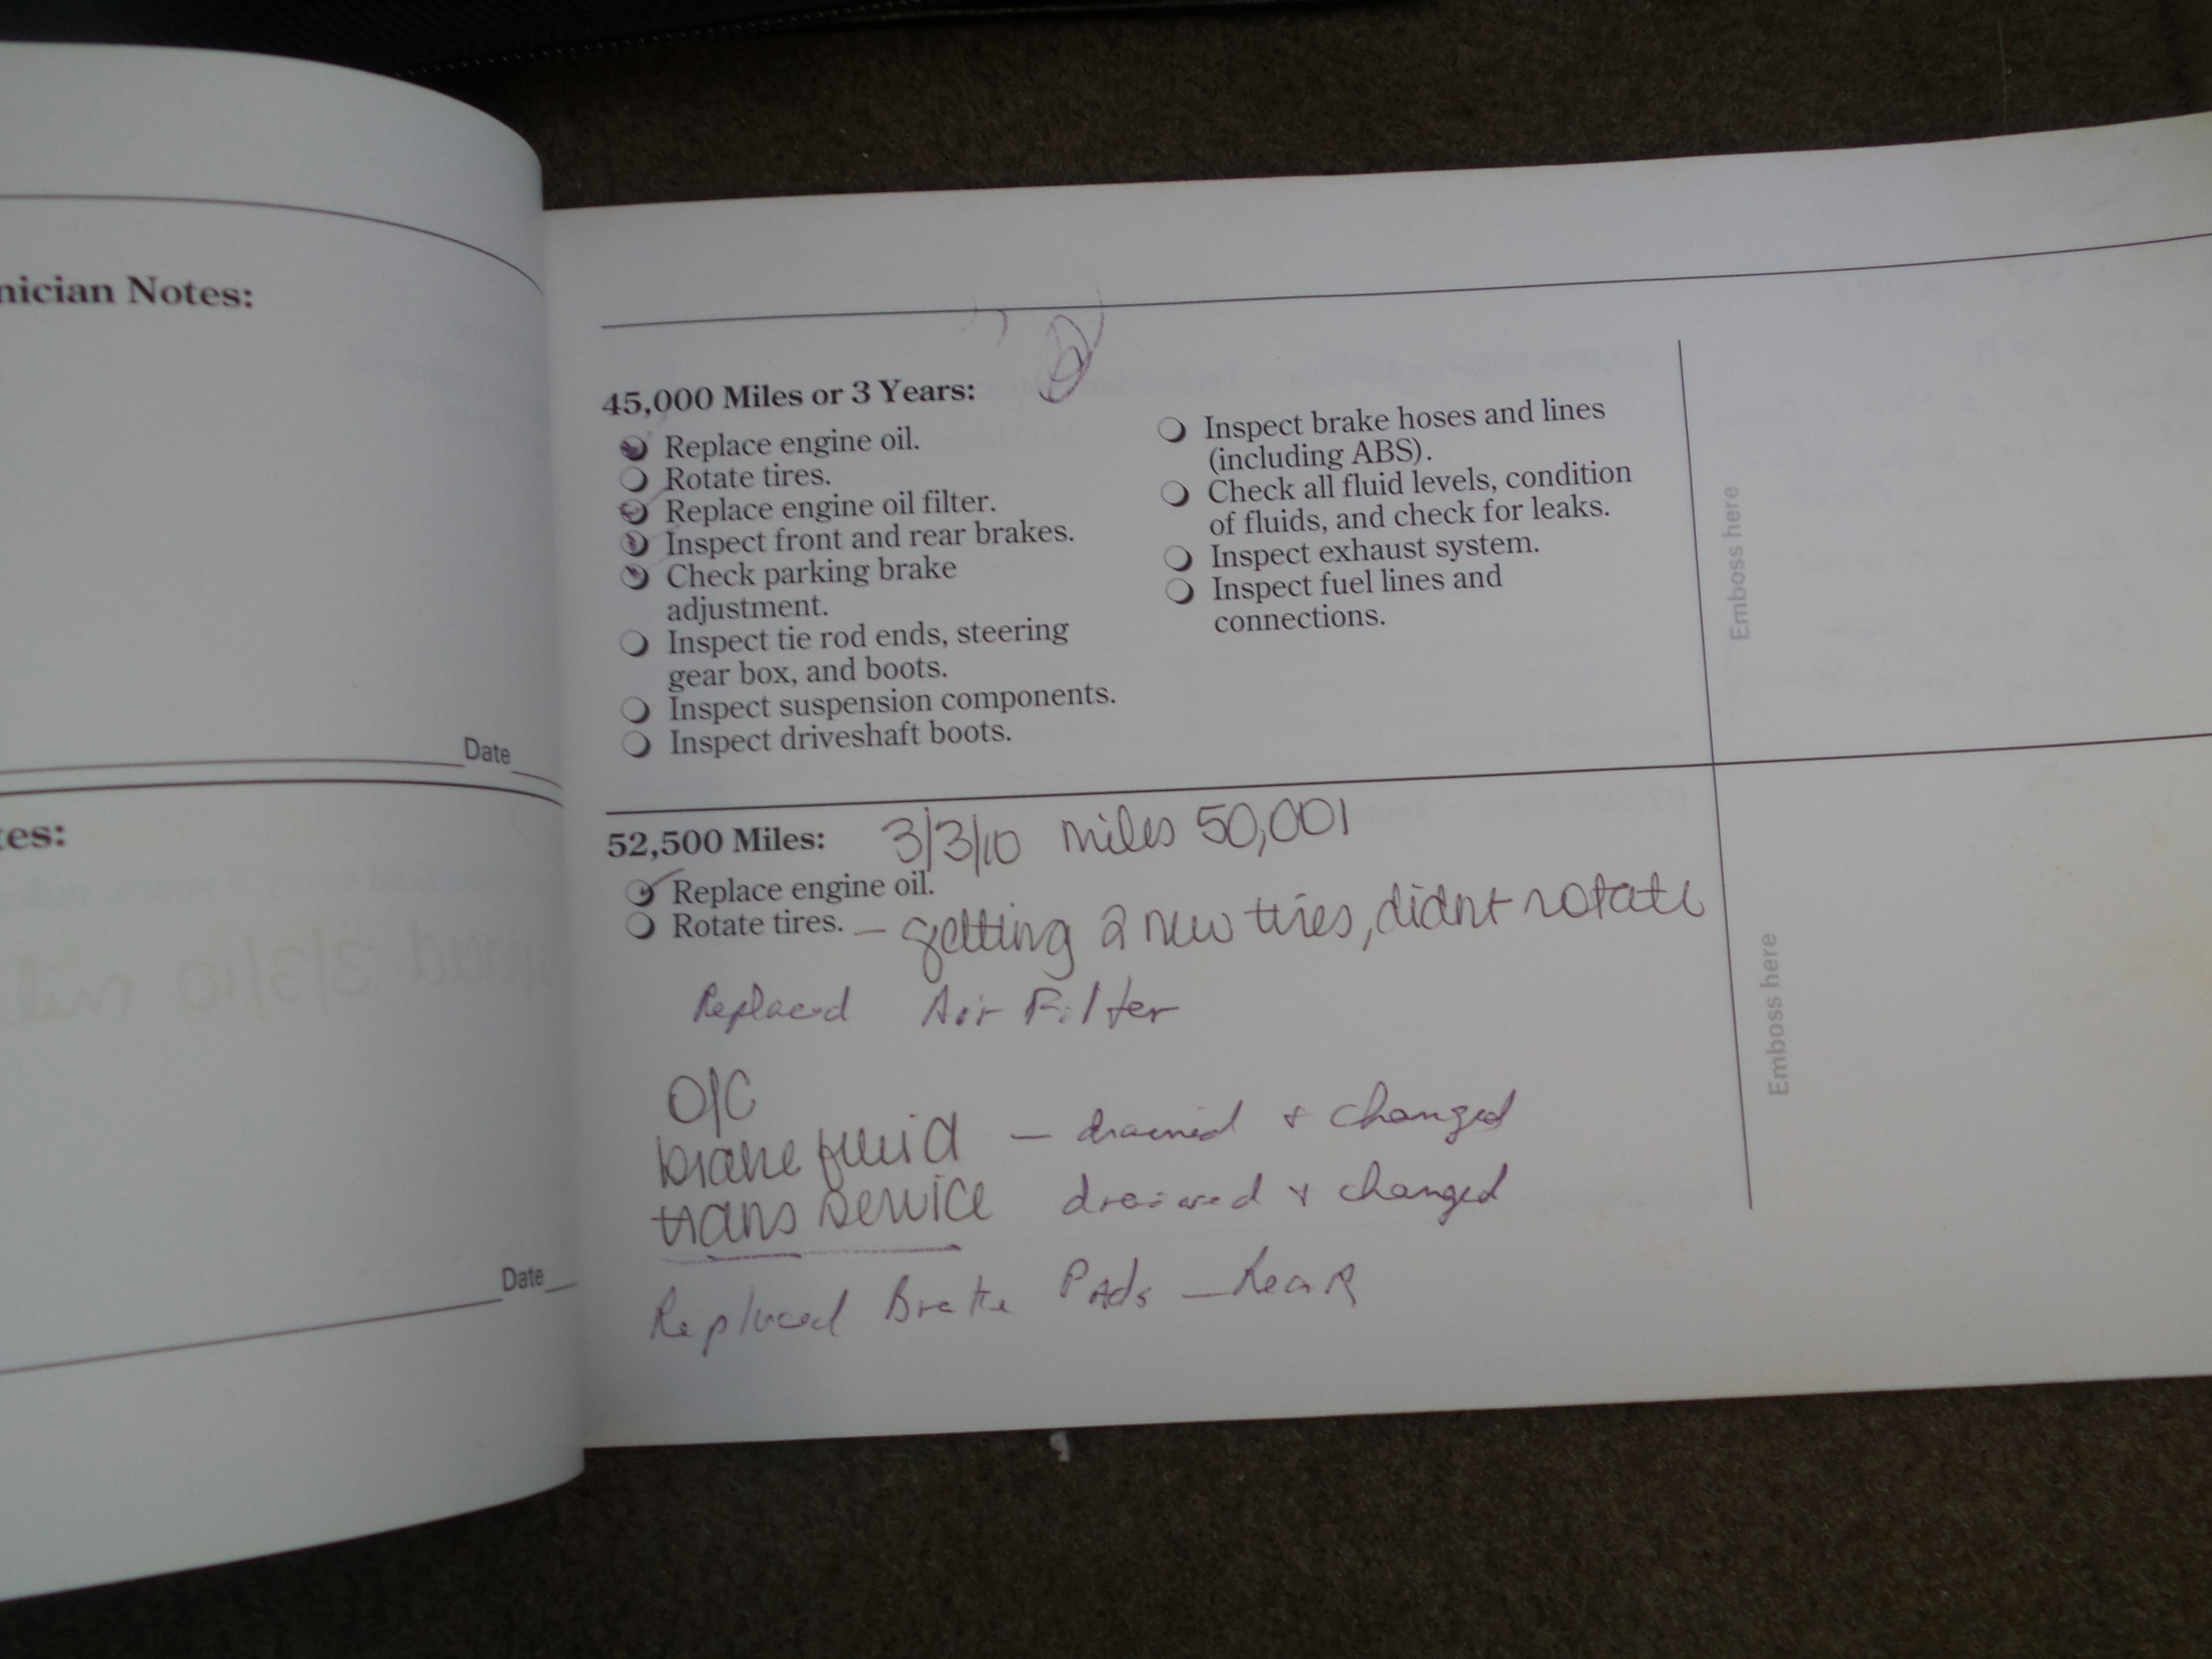 nician Notes:
Date
tes:
Date
45,000 Miles or 3 Years:
Replace engine oil.
Rotate tires.
Replace engine oil filter.
Inspect front and rear brakes.
Check parking brake
adjustment.
Inspect tie rod ends, steering
gear box, and boots.
Inspect suspension components.
Inspect driveshaft boots.
Inspect brake hoses and lines
(including ABS).
Check all fluid levels, condition
of fluids, and check for leaks.
Inspect exhaust system.
Inspect fuel lines and
connections.
Emboss here
52,500 Miles: 3/3/10 miles 50,001
Replace engine oil.
Rotate tires. — getting 2 new tires, didnt rotate
Replaced Air Filter
O/C
brake fluid — drained & changed
trans service drained & changed
Replaced Brake PAds — Rear
Emboss here